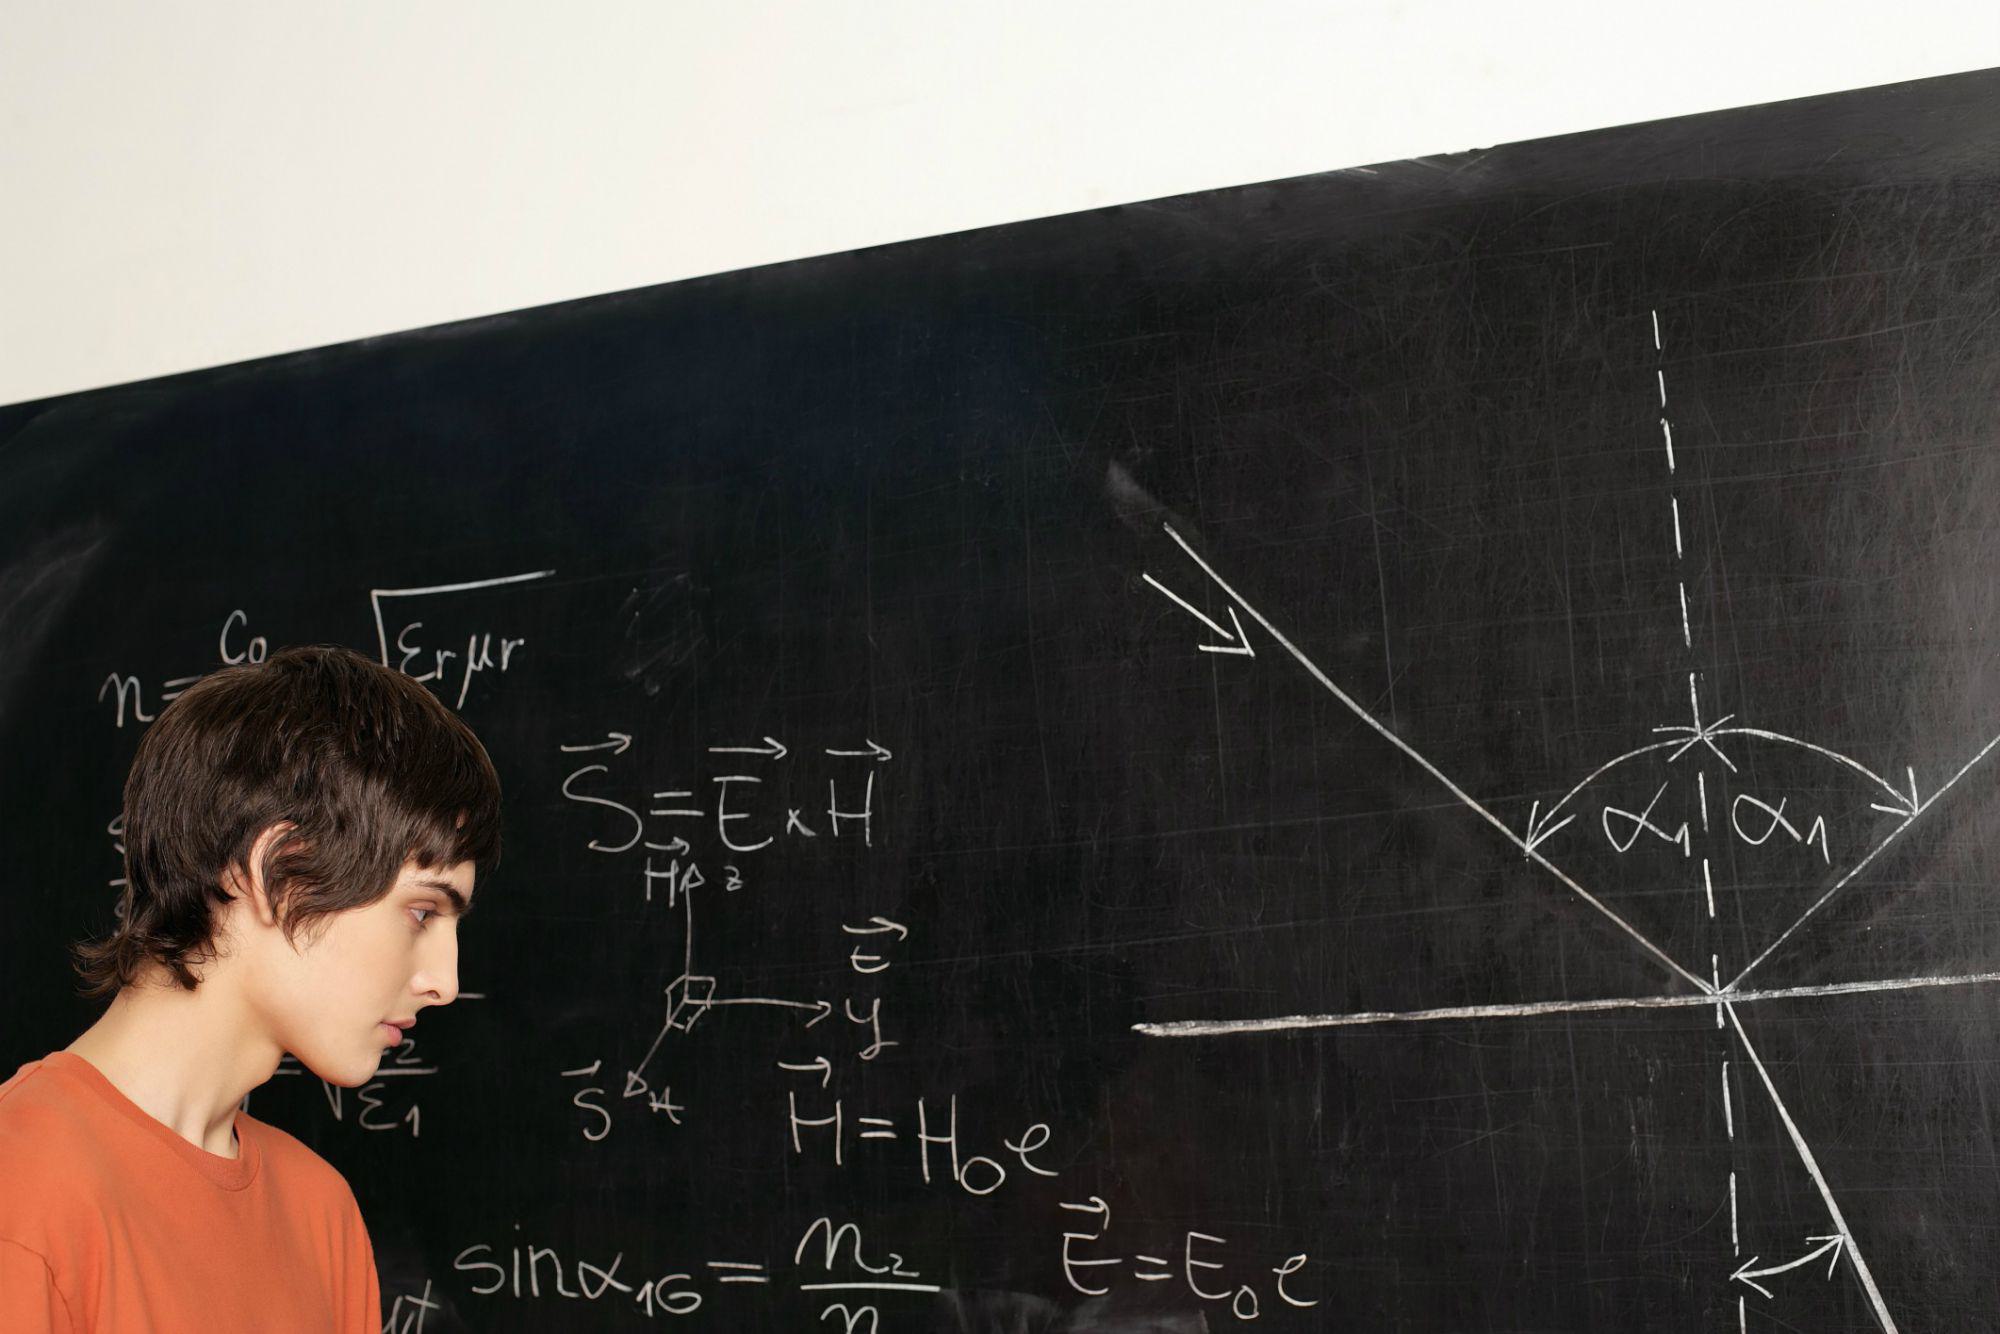 n = C₀
√εrμr
S⃗ = E⃗ × H⃗
H⃗ z
E⃗
y
S⃗ x
√ε₁
H⃗ = H₀e
sinα₁G = n₂ / n
E⃗ = E₀e
α₁ α₁